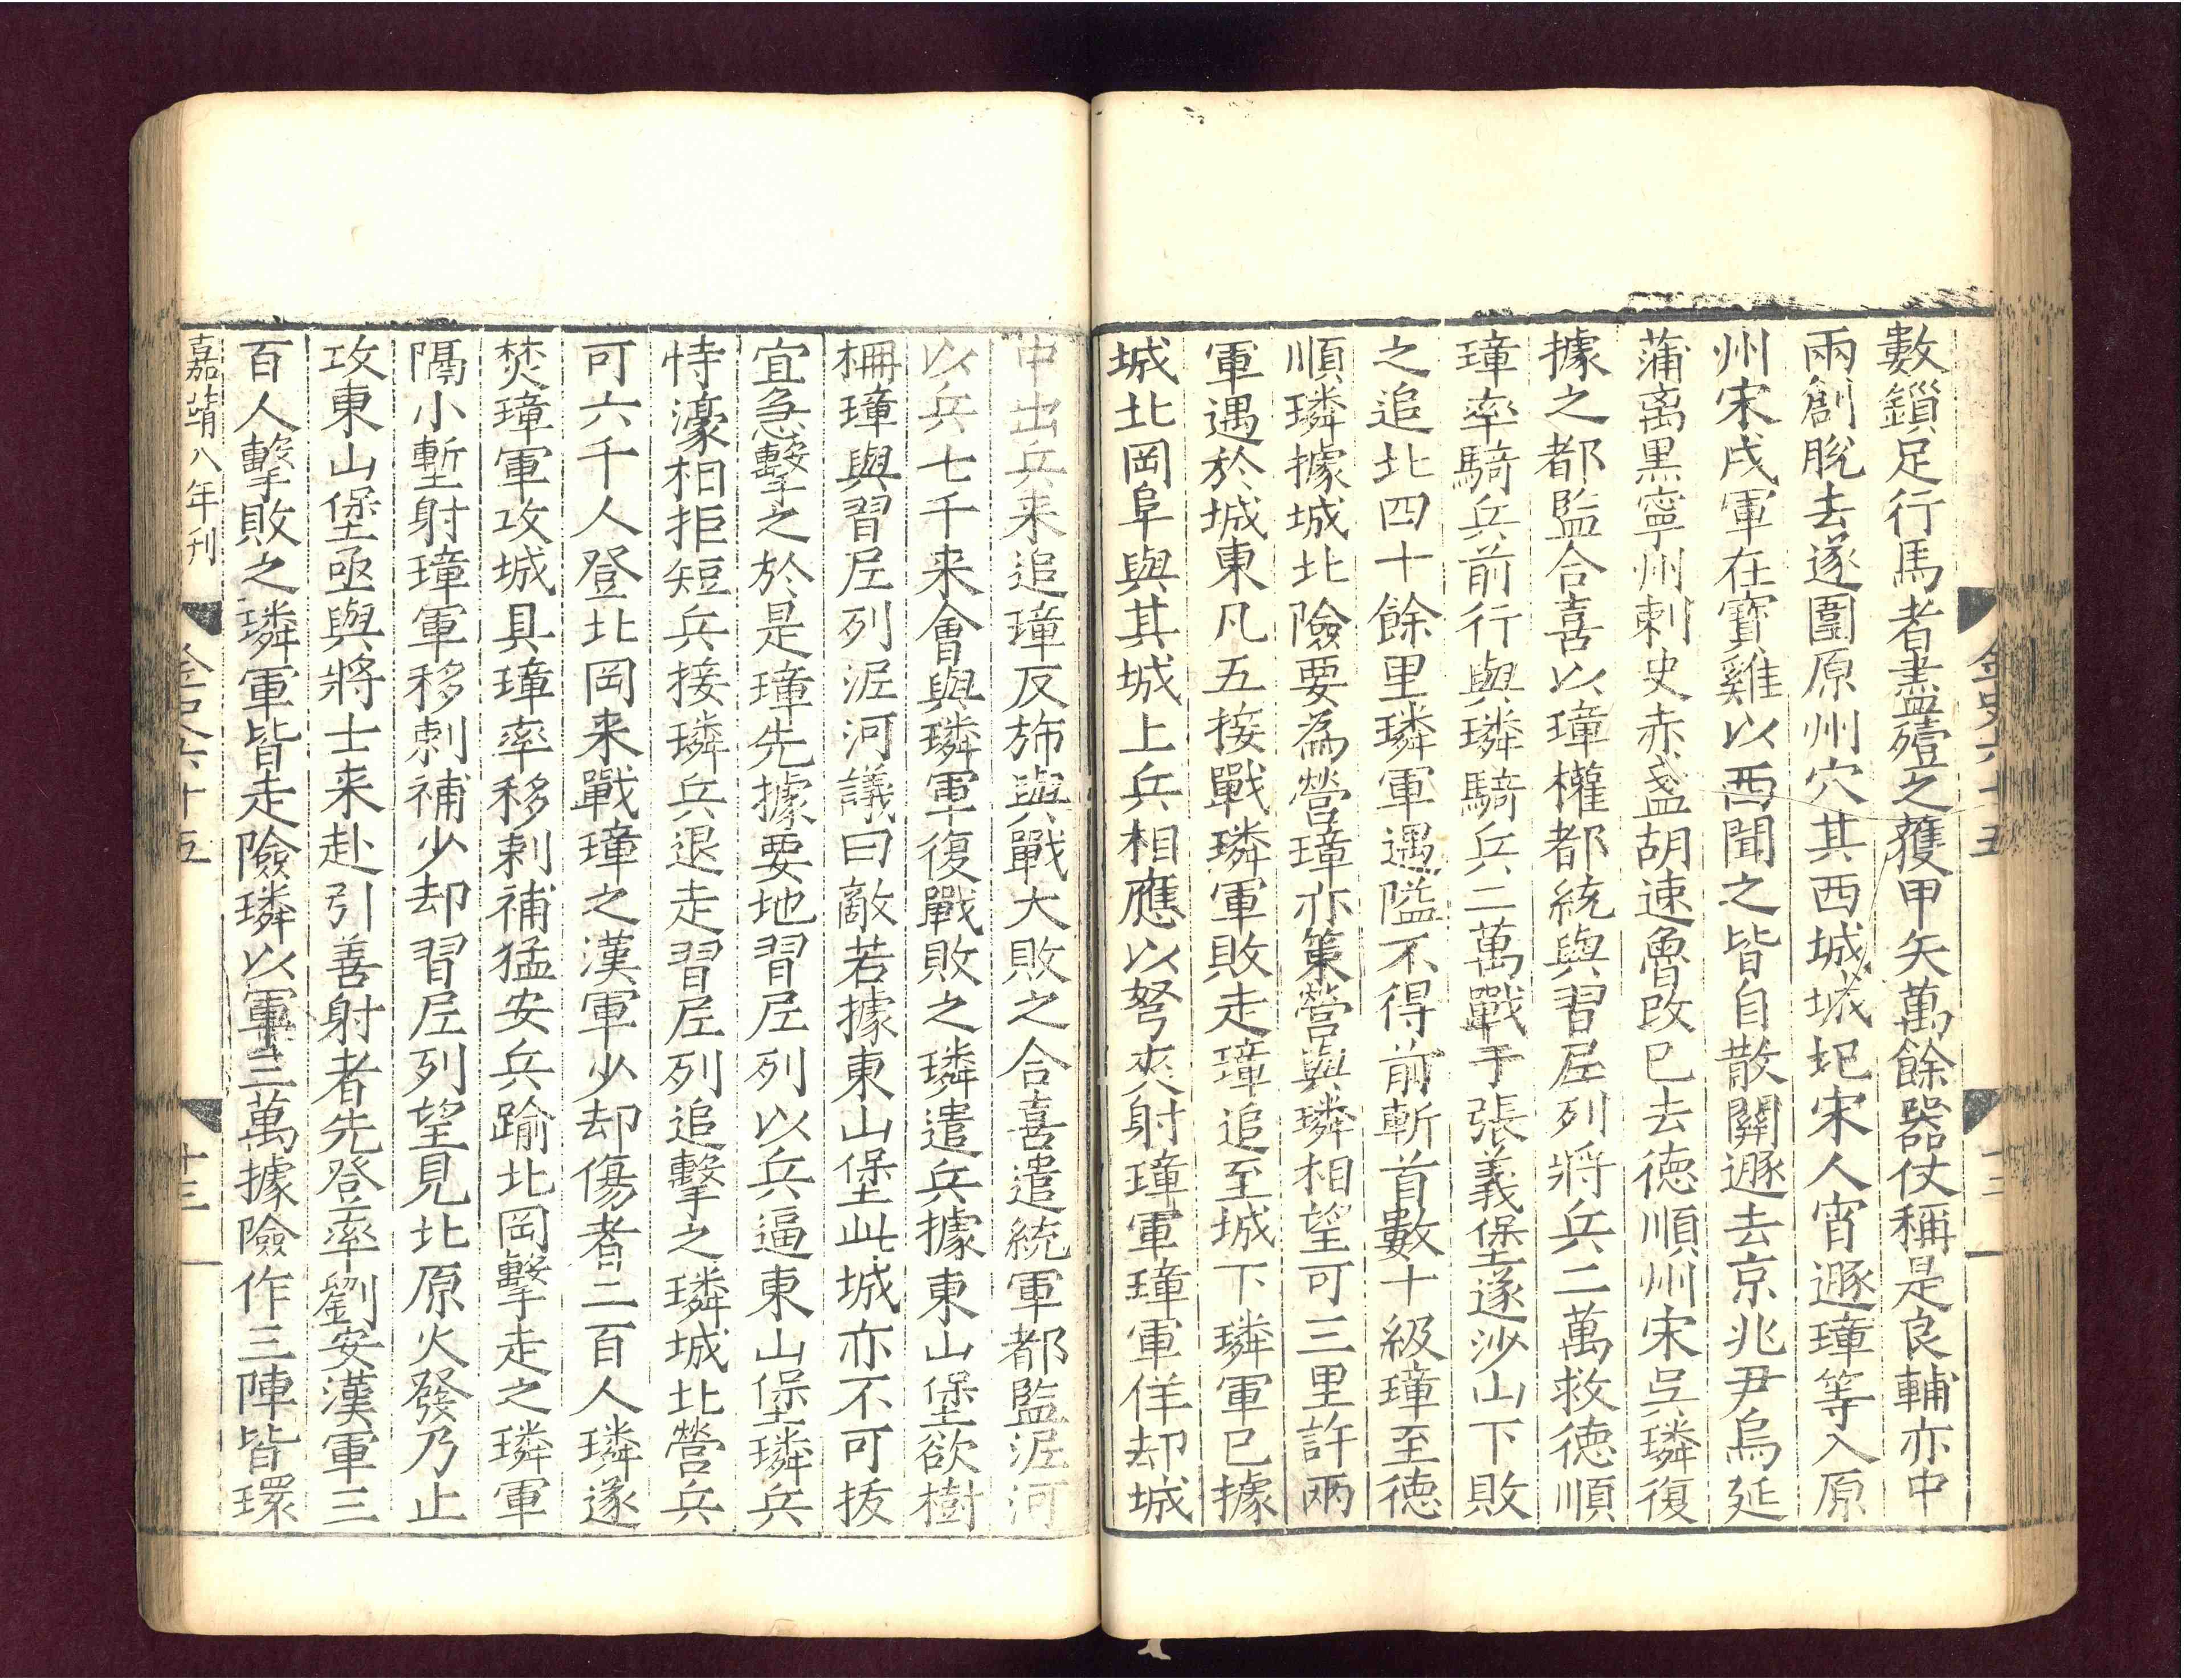 數鎻足行馬者盡殪之獲甲矢萬餘器仗稱是良輔亦中
兩創脫去遂圍原州穴其西城城圮宋人宵遯璋等入原
州宋戍軍在寶雞以西聞之皆自散關遯去京兆尹烏延
蒲离黑寧州刺史赤盞胡速魯改已去徳順州宋吳璘復
據之都監合喜以璋權都統與習𡰥列將兵二萬救徳順
璋率騎兵前行與璘騎兵二萬戰于張義堡遂沙山下敗
之追北四十餘里璘軍遇隘不得前斬首數十級璋至徳
順璘據城北險要為營璋亦策營與璘相望可三里許兩
軍遇於城東凡五接戰璘軍敗走璋追至城下璘軍已據
城北岡阜與其城上兵相應以弩夾射璋軍璋軍佯却城
中出兵来追璋反斾與戰大敗之合喜遣統軍都監泥河
以兵七千来會與璘軍復戰敗之璘遣兵據東山堡欲樹
柵璋與習𡰥列泥河議曰敵若據東山堡此城亦不可拔
宜急擊之於是璋先據要地習𡰥列以兵逼東山堡璘兵
恃濠相拒短兵接璘兵退走習𡰥列追擊之璘城北營兵
可六千人登北岡来戰璋之漢軍少却傷者二百人璘遂
焚璋軍攻城具璋率移剌補猛安兵踰北岡擊走之璘軍
隔小塹射璋軍移剌補少却習𡰥列望見北原火發乃止
攻東山堡亟與將士来赴引善射者先登率劉安漢軍三
百人擊敗之璘軍皆走險璘以軍三萬據險作三陣皆環
嘉靖八年刊 金史六十五 十三